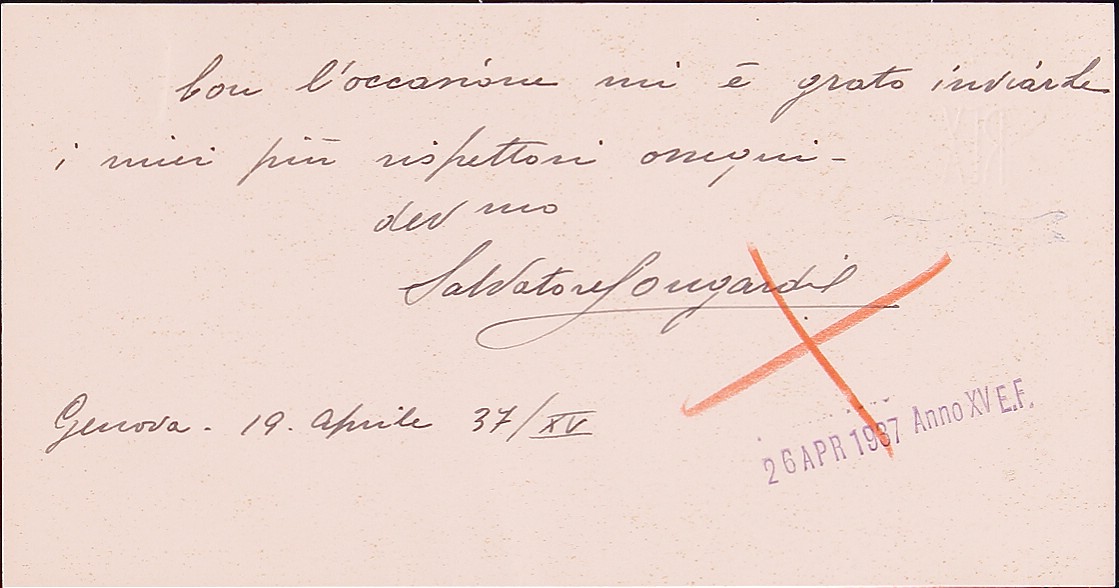 Con l'occasione mi è grato inviarle
i miei più rispettosi ossequi-
dev mo
Salvatore
Genova - 19. Aprile 37/XV
26 APR 1937 Anno XV E.F.